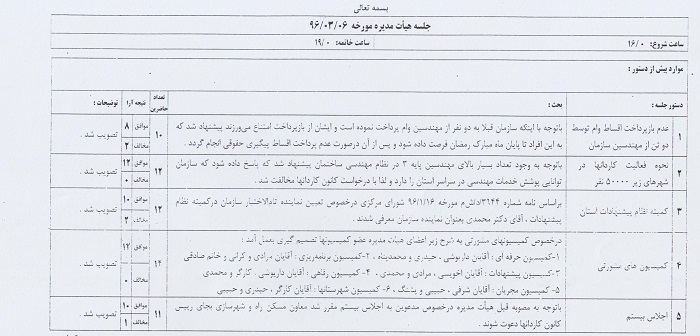 بسمه تعالی
جلسه هیأت مدیره مورخه ۹۶/۰۳/۰۶
ساعت شروع: ۱۶/۰
ساعت خاتمه: ۱۹/۰
موارد پیش از دستور :
دستور جلسه:
بحث :
تعداد حاضرین
نتیجه آرا
توضیحات :
۱
عدم بازپرداخت اقساط وام توسط
دو تن از مهندسین سازمان
باتوجه با اینکه سازمان قبلا به دو نفر از مهندسین وام پرداخت نموده است و ایشان از بازپرداخت امتناع می‌ورزند پیشنهاد شد که
به این افراد تا پایان ماه مبارک رمضان فرصت داده شود و پس از آن درصورت عدم پرداخت اقساط پیگیری حقوقی انجام گردد .
۱۰
موافق ۸
مخالف ۲
تصویب شد .
۲
نحوه فعالیت کاردانها در
شهرهای زیر ۵۰۰۰۰ نفر
باتوجه به وجود تعداد بسیار بالای مهندسین پایه ۳ در نظام مهندسی ساختمان پیشنهاد شد که پاسخ داده شود که سازمان
توانایی پوشش خدمات مهندسی در سراسر استان را دارد و لذا با درخواست کانون کاردانها مخالفت شد .
۱۲
موافق ۱۲
مخالف ۰
تصویب شد .
۳
کمیته نظام پیشنهادات استان
براساس نامه شماره ۳۱۴۴/ش‌م مورخه ۹۶/۱/۱۶ شورای مرکزی درخصوص تعیین نماینده تام‌الاختیار سازمان درکمیته نظام
پیشنهادات ، آقای دکتر محمدی بعنوان نماینده سازمان معرفی شدند .
۱۲
موافق ۱۰
مخالف ۲
تصویب شد .
۴
کمیسیون های مشورتی
درخصوص کمیسیونهای مشورتی به شرح زیر اعضای هیأت مدیره عضو کمیسیونها تصمیم گیری بعمل آمد :
۱-کمیسیون حرفه ای : آقایان داریوشی ، حیدری و محمدپناه . ۲-کمیسیون برنامه‌ریزی : آقایان مرادی و کرانی و خانم صادقی
۳-کمیسیون پیشنهادات : آقایان اخویسی ، مرادی و محمدی . ۴-کمیسیون رفاهی : آقایان داریوشی . کارگر و محمدی
۵-کمیسیون مجریان : آقایان شرفی ، حبیبی و پشتنگ . ۶-کمیسیون شهرستانها : آقایان کارگر ، حیدری و حبیبی
۱۲
موافق ۱۲
مخالف ۰
تصویب شد .
۵
اجلاس بیستم
باتوجه به مصوبه قبل هیأت مدیره درخصوص مدعوین به اجلاس بیستم مقرر شد معاون مسکن راه و شهرسازی بجای رییس
کانون کاردانها دعوت شوند .
۱۱
موافق ۱۰
مخالف ۱
تصویب شد .